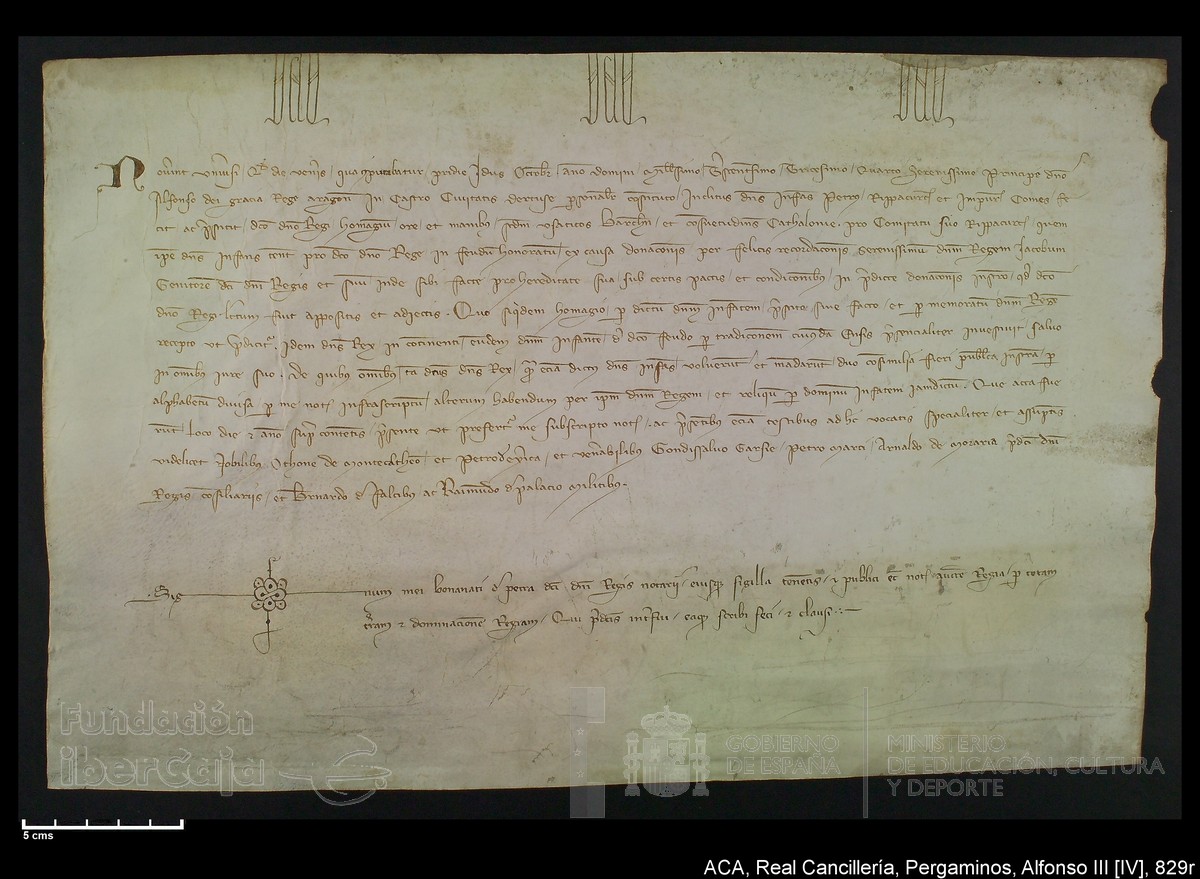 Noverint universi Quod die veneris qua computabatur pridie Idus Octobris anno domini Millesimo Trescentesimo Tricesimo Quarto Serenissimo Principe dno
Alfonso dei gracia Rege aragon in Castro Civitatis dertuse personaliter constituto Inclitus dns Infans Petrus Rippacurcie et Impuriarum Comes fe
cit ac prestitit dco dno Regi homagium ore et manibus scdm usaticos Barchn et consuetudines Cathalonie pro Comitatu suo Rippacurcie quem
ipse dns Infans tenet pro dco dno Rege in feudum honoratum ex causa donaconis per felicis recordaconis Serenissimum dnm Regem Jacobum
Genitorem dci dni Regis et suum inde sibi facte pro hereditate sua sub certis pactis et condiconibus in predicte donaconis instro
dno Regi appositis et adiectis. Quo siquidem homagio per dictum dnm Infantem prestito sive facto et per memoratum dnm Regem
recepto ut predicitur Idem dns Rex in continenti eundem dnm Infantem de dco feudo per tradiconem cuiusdam Ensis presencialiter investivit salvo
in omnibus iure suo. De quibus omnibus tam dcus dns Rex quam etiam dictus dns Infans voluerunt et mandarunt duo consimilia fieri publica instra per
alphabetum divisa per me not infrascriptum alterum habendum per ipm dnm Regem et reliquum per dominum Infantem iamdictum. Que acta fue
runt loco die et anno supra contentis presente ut prefertur me subscripto not ac presentibus etiam testibus ad hec vocatis specialiter et assumptis
videlicet Nobilibus Othone de Montecatheno et Petro de Xerica et venerabilibus Gondissalvo Garsie Petro Marci Arnaldo de Moraria pdci dni
Regis consiliariis et Bernardo de Falcibus ac Raimundo de palacio Militibus.
Sig num mei bonanati de petra dci dni Regis notarii eiusque sigilla tenentis et publici not auctoritate Regia per totam
terram et dominacionem Regiam Qui predictis interfui eaque scribi feci et clausi
Fundación
iberCaja
GOBIERNO
DE ESPAÑA
MINISTERIO
DE EDUCACIÓN, CULTURA
Y DEPORTE
5 cms
ACA, Real Cancillería, Pergaminos, Alfonso III [IV], 829r